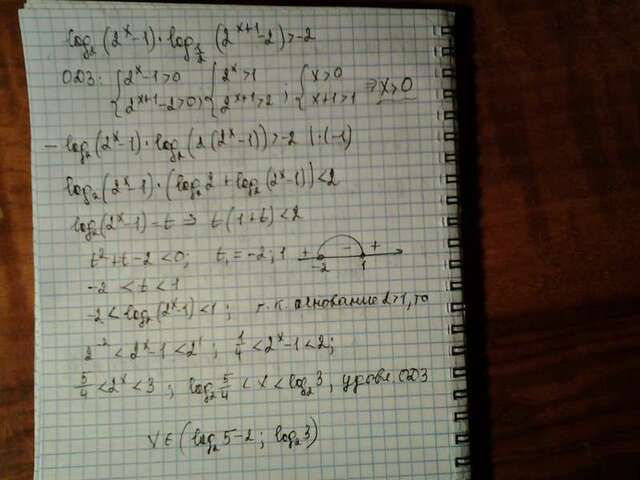 log₂(2ˣ-1)·log_{1/2}(2ˣ⁺¹-2)>-2
ОДЗ: {2ˣ-1>0 2ˣ⁺¹-2>0; {2ˣ>1 2ˣ⁺¹>2; {x>0 x+1>1 ⇒ x>0
-log₂(2ˣ-1)·log₂(2(2ˣ-1))>-2 |·(-1)
log₂(2ˣ-1)·(log₂2+log₂(2ˣ-1))<2
log₂(2ˣ-1)=t ⇒ t(1+t)<2
t²+t-2<0; t₁=-2; 1 + - + -2 1
-2<t<1
-2<log₂(2ˣ-1)<1; т.к. основание 2>1, то
2⁻²<2ˣ-1<2¹; 1/4<2ˣ-1<2;
5/4<2ˣ<3; log₂5/4<x<log₂3, удовл. ОДЗ
x∈(log₂5-2; log₂3)